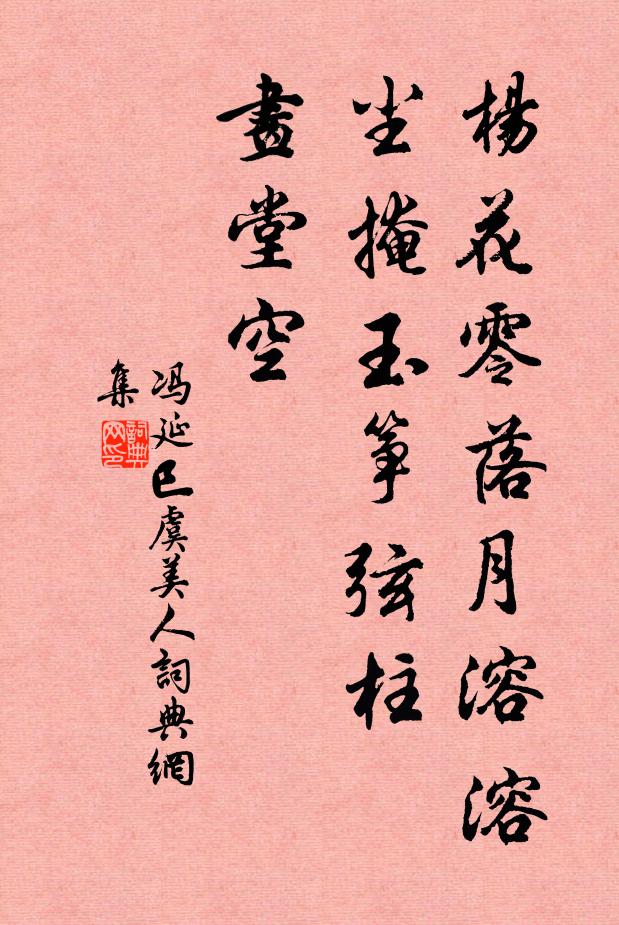 楊花零落月溶溶
尘掩玉筝弦柱
畫堂空
冯延巳虞美人詞典網
集
詞典网印